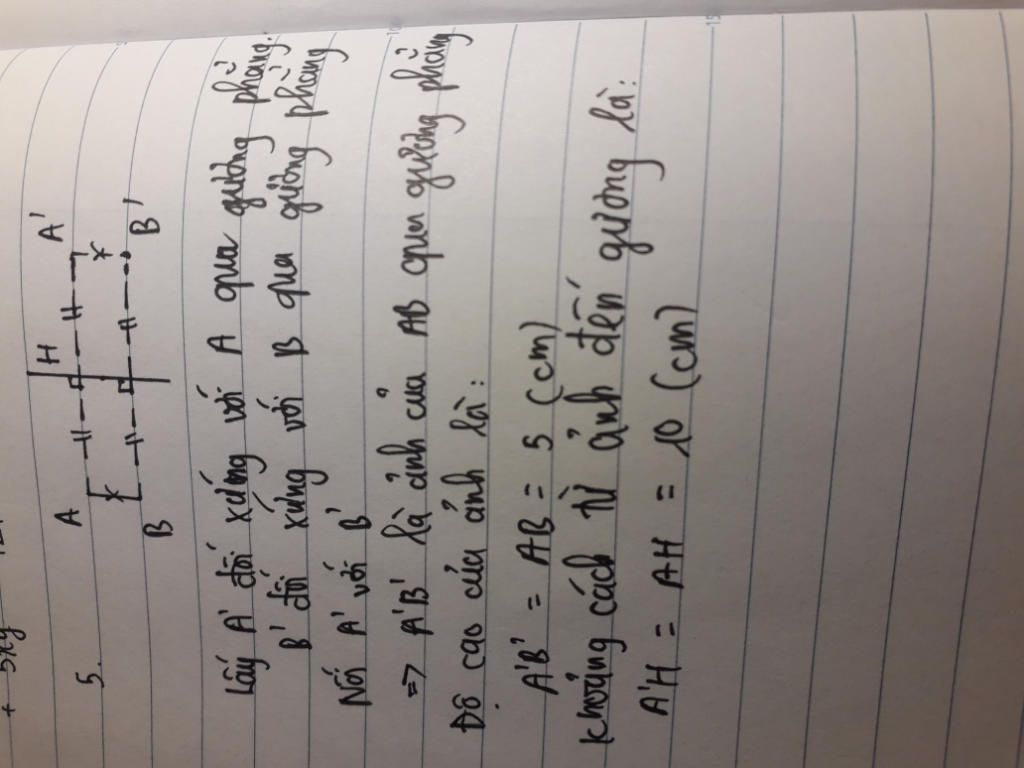 5.
A H A'
B B'
Lấy A' đối xứng với A qua gương phẳng.
B' đối xứng với B qua gương phẳng
Nối A' với B'
=> A'B' là ảnh của AB qua gương phẳng
Độ cao của ảnh là:
A'B' = AB = 5 (cm)
Khoảng cách từ ảnh đến gương là:
A'H = AH = 10 (cm)